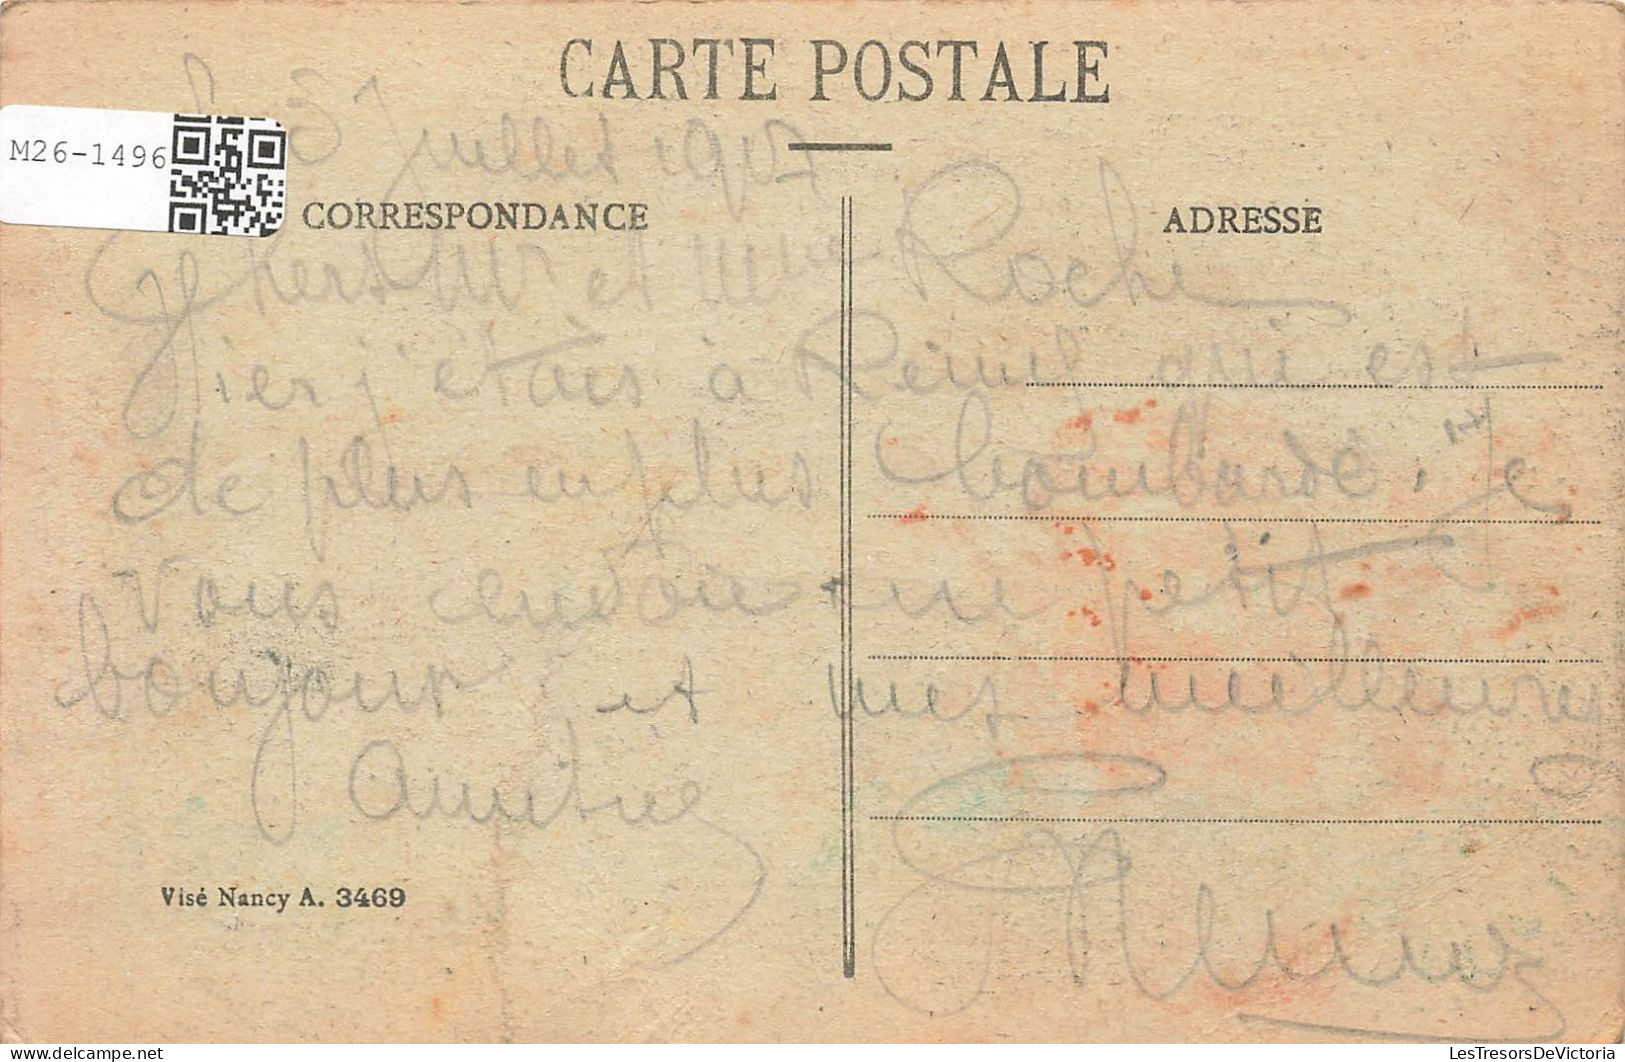 CARTE POSTALE
M26-1496
Juillet 1917
CORRESPONDANCE
ADRESSE
Chers Mr et Mme Roche
Hier j'étais à Reims qui est
de plus en plus bombardé. Je
vous envoie un petit
bonjour et mes meilleures
Amitiés
Visé Nancy A. 3469
LesTresorsDeVictoria